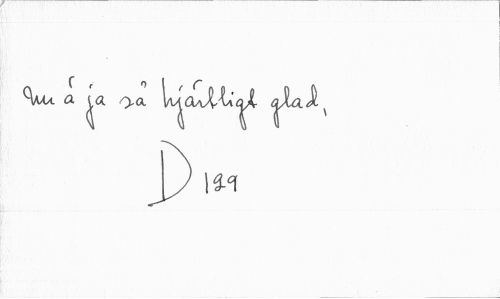 nu á ja så hjärtligt glad,
D 129